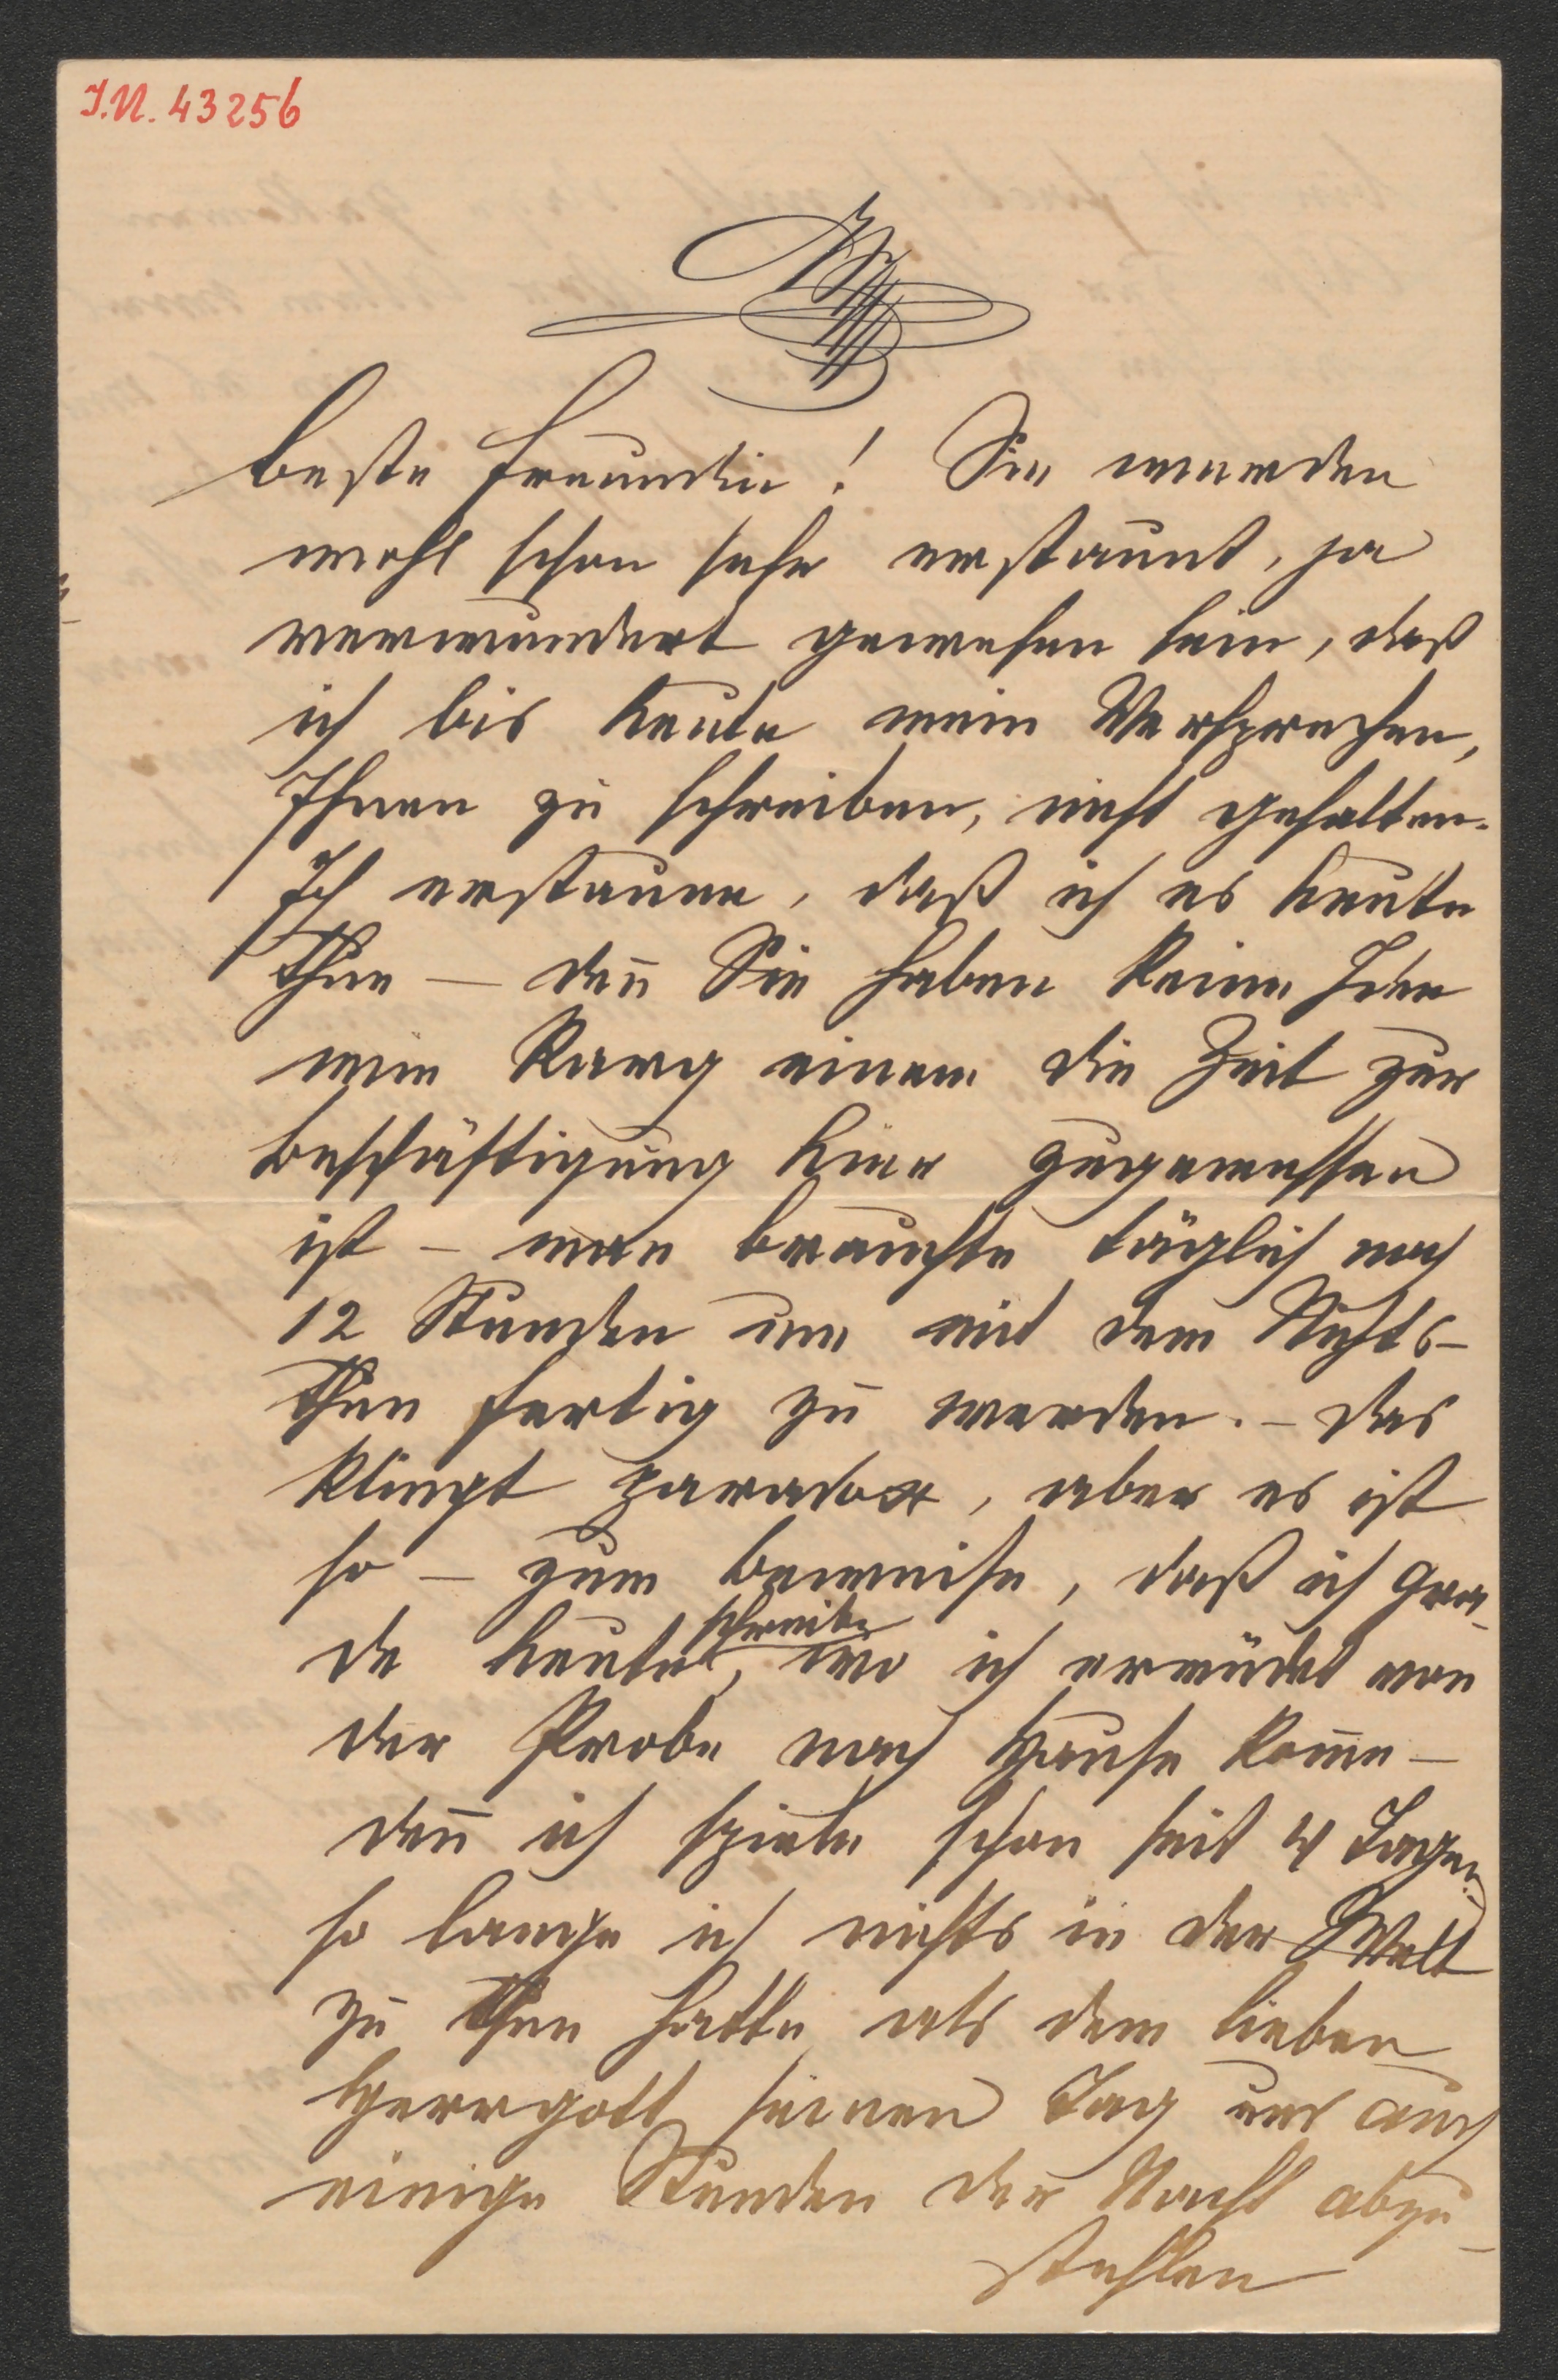 I.N. 43256
Beste Freundin! Sie werden
wohl schon sehr erstaunt, ja
verwundert gewesen sein, daß
ich bis heute mein Versprechen,
Ihnen zu schreiben, nicht gehalten.
Ich erstaune, daß ich es heute
thue — den̅ Sie haben keine Idee
wie karg einem die Zeit zur
Beschäftigung hier zugemessen
ist – man brauchte täglich noch
12 Stunden um mit dem Nichts-
thun fertig zu werden. – Das
klingt paradox, aber es ist
so – zum Beweise, daß ich gra-
de heute schreibe, wo ich ermüdet von
der Probe nach Hause kom̅e –
den̅ ich spiele schon seit 4 Tagen.
so lange ich nichts in der Welt
zu thun hatte, als dem lieben
Herrgott seinen Tag und auch
einige Stunden der Nacht abzu-
stehlen